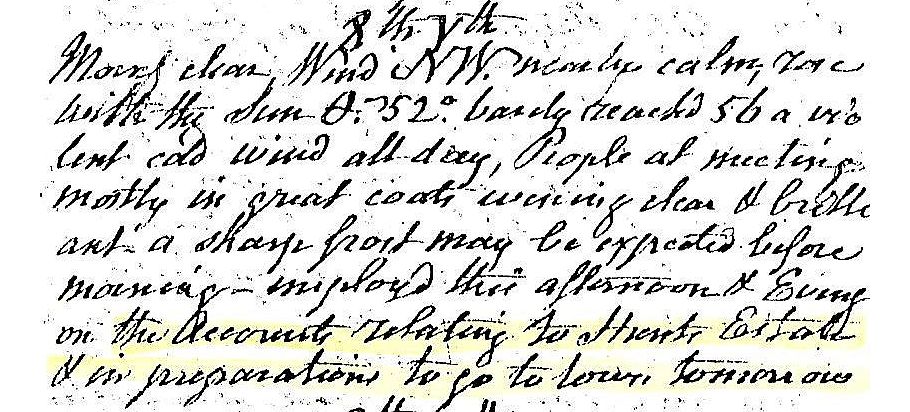 8th 5th
Morng clear, Wind NW. nearly calm, rose
with the Sun & 52° barely reachd 56 a vio
lent cold wind all day, People at meeting
mostly in great coats evening clear & brilli
ant a sharp frost may be expected before
morning – employd this afternoon & Eveng
on the Accounts relating to Estate
& in preparations to go to town tomorrow